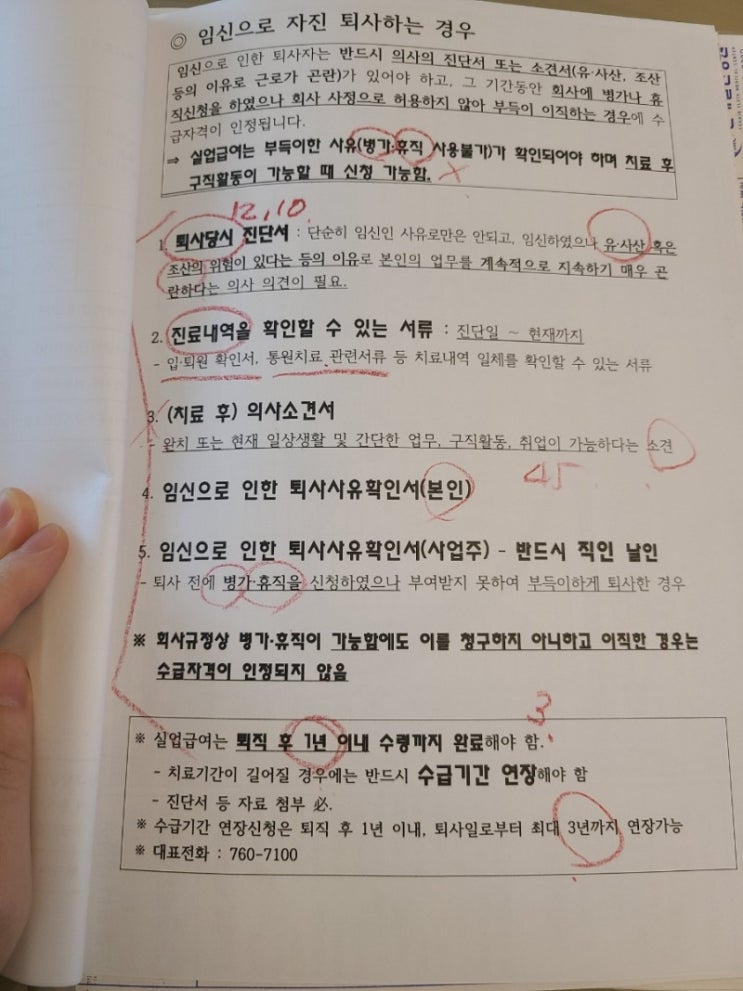 ◎ 임신으로 자진 퇴사하는 경우
임신으로 인한 퇴사자는 반드시 의사의 진단서 또는 소견서(유·사산, 조산
등의 이유로 근로가 곤란)가 있어야 하고, 그 기간동안 회사에 병가나 휴
직신청을 하였으나 회사 사정으로 허용하지 않아 부득이 이직하는 경우에 수
급자격이 인정됩니다.
⇒ 실업급여는 부득이한 사유(병가·휴직 사용불가)가 확인되어야 하며 치료 후
구직활동이 가능할 때 신청 가능함.
12,10.
1. 퇴사당시 진단서 : 단순히 임신인 사유로만은 안되고, 임신하였으나 유·사산 혹은
조산의 위험이 있다는 등의 이유로 본인의 업무를 계속적으로 지속하기 매우 곤
란하다는 의사 의견이 필요.
2. 진료내역을 확인할 수 있는 서류 : 진단일 ~ 현재까지
- 입·퇴원 확인서, 통원치료 관련서류 등 치료내역 일체를 확인할 수 있는 서류
3. (치료 후) 의사소견서
- 완치 또는 현재 일상생활 및 간단한 업무, 구직활동, 취업이 가능하다는 소견
45
4. 임신으로 인한 퇴사사유확인서(본인)
5. 임신으로 인한 퇴사사유확인서(사업주) - 반드시 직인 날인
- 퇴사 전에 병가·휴직을 신청하였으나 부여받지 못하여 부득이하게 퇴사한 경우
※ 회사규정상 병가·휴직이 가능함에도 이를 청구하지 아니하고 이직한 경우는
수급자격이 인정되지 않음
3
※ 실업급여는 퇴직 후 1년 이내 수령까지 완료해야 함.
- 치료기간이 길어질 경우에는 반드시 수급기간 연장해야 함
- 진단서 등 자료 첨부 必.
※ 수급기간 연장신청은 퇴직 후 1년 이내, 퇴사일로부터 최대 3년까지 연장가능
※ 대표전화 : 760-7100